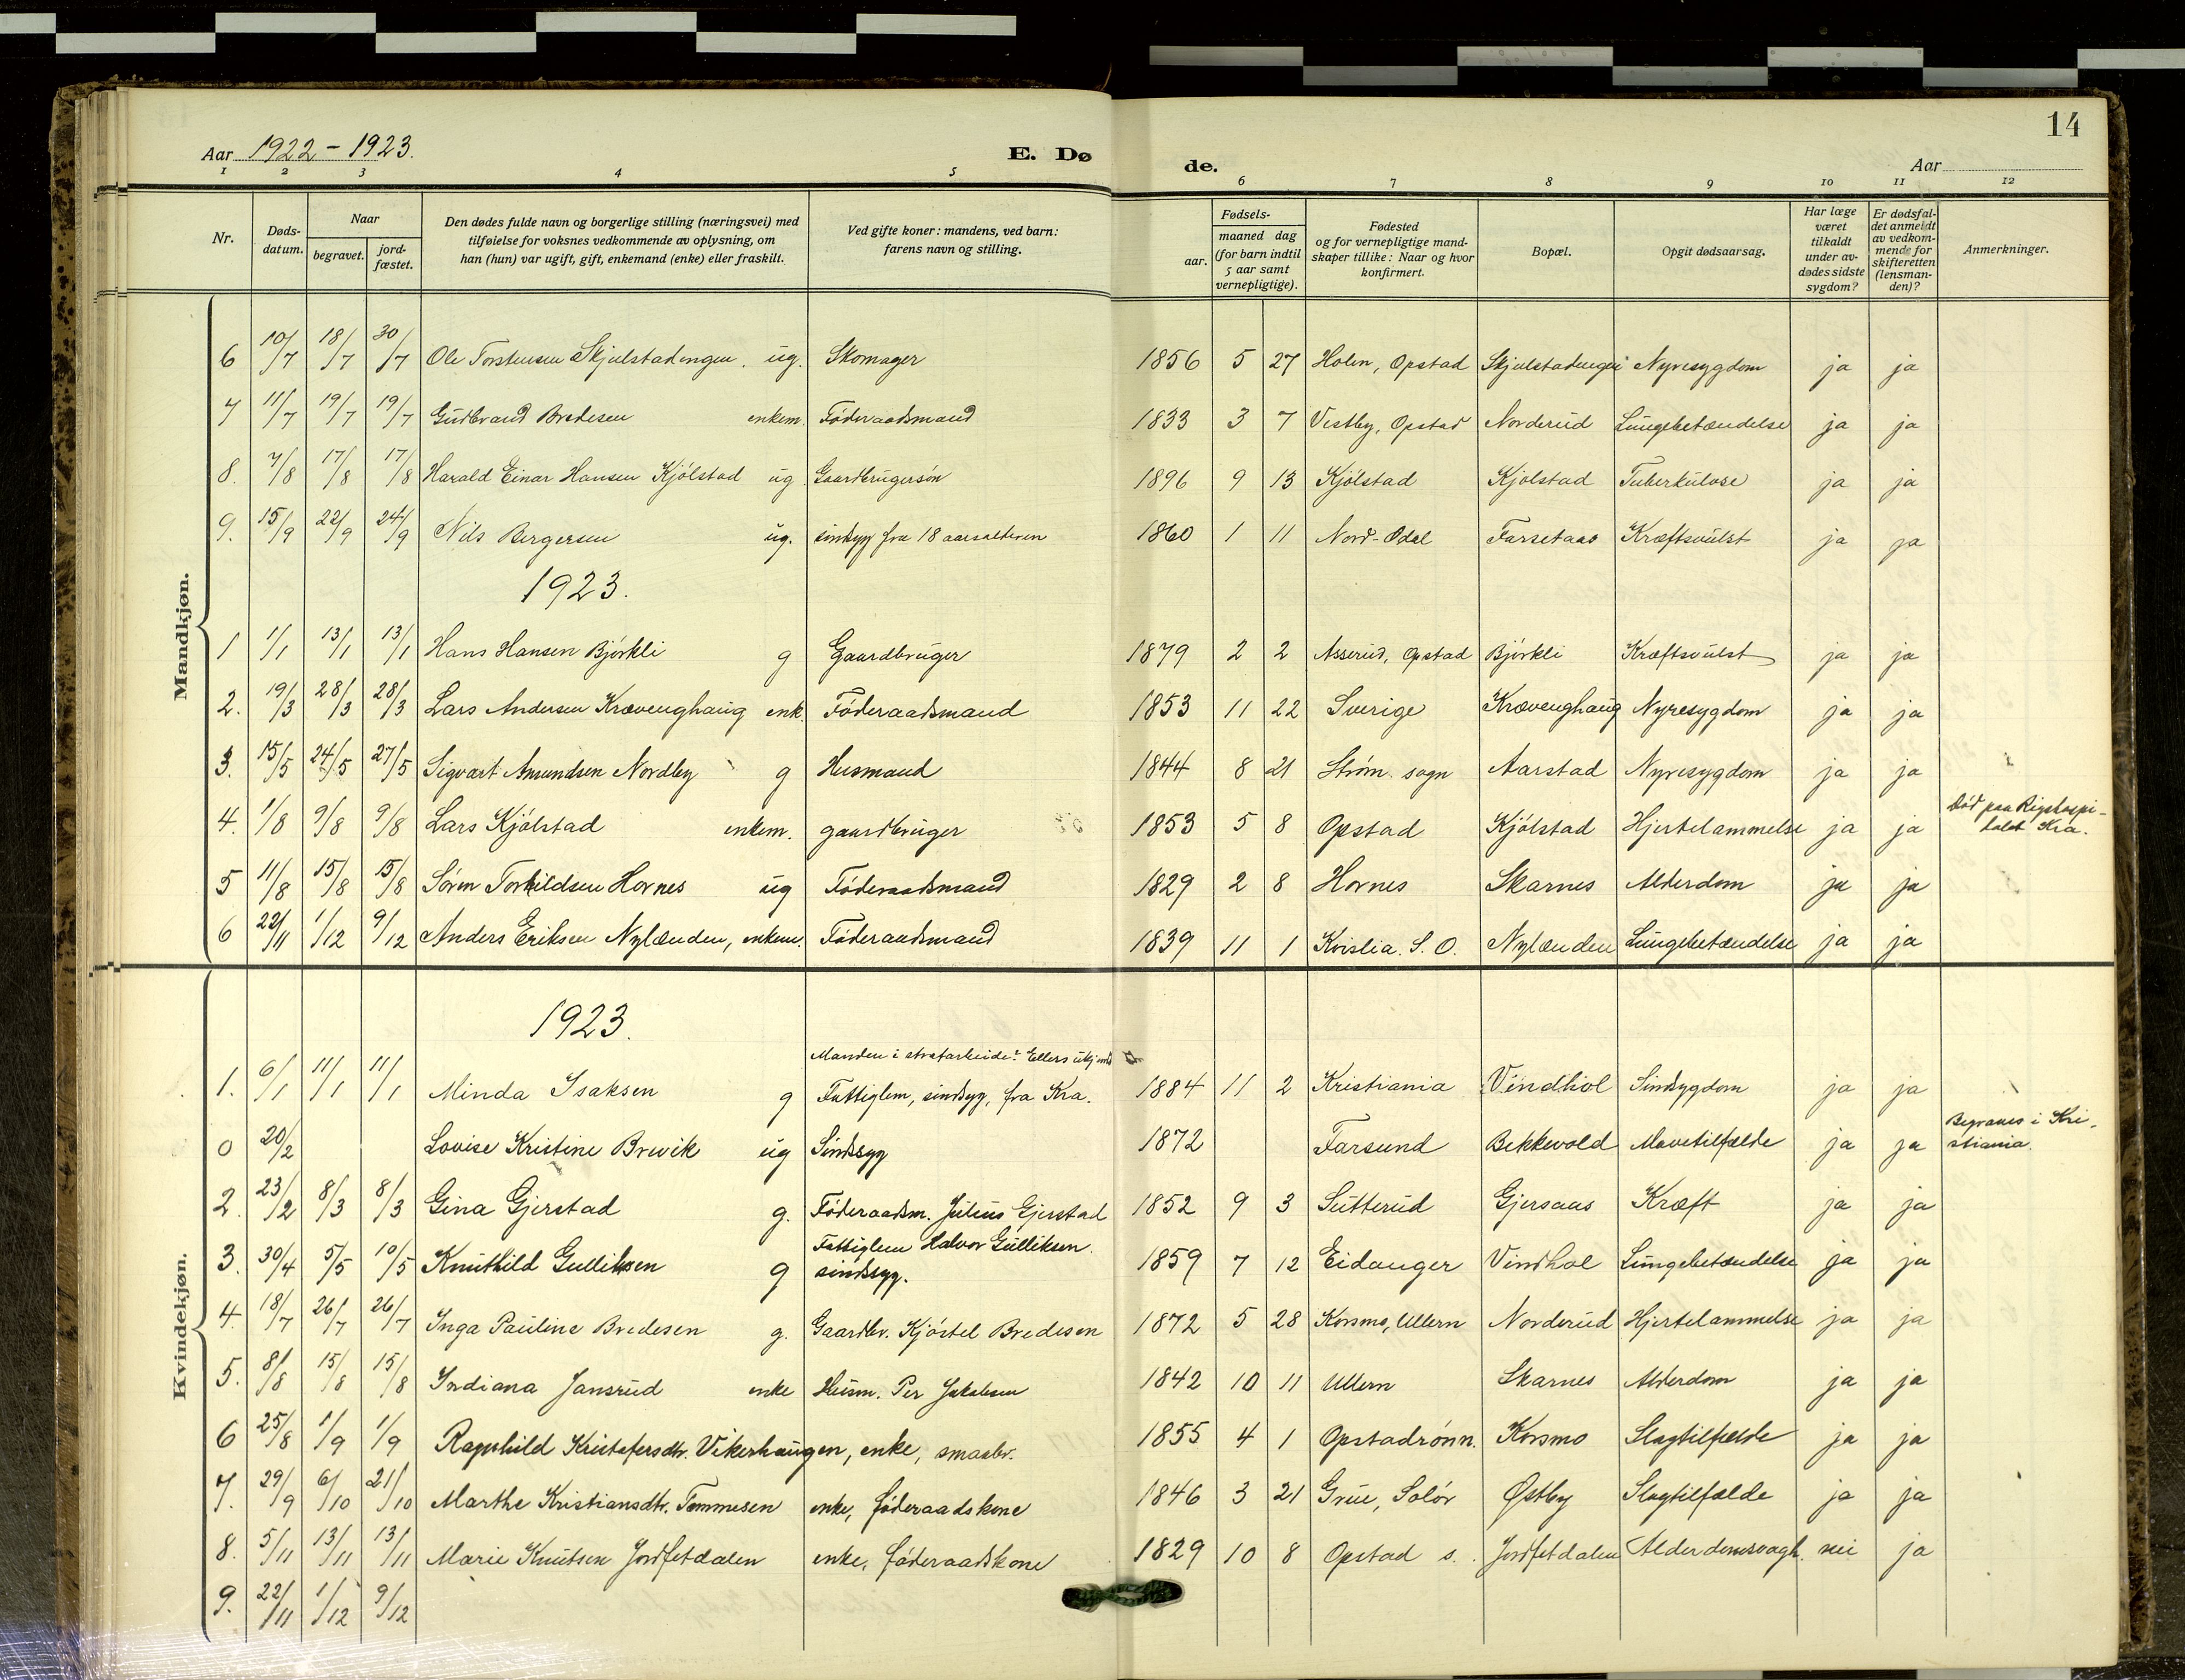 14
Aar 1922 - 1923.
E. Dø
de.
Aar
1 2 3 4 5 6 7 8 9 10 11 12
Nr.
Døds-
datum.
Naar
begravet.
jord-
fæstet.
Den dødes fulde navn og borgerlige stilling (næringsvei) med
tilføielse for voksnes vedkommende av oplysning, om
han (hun) var ugift, gift, enkemand (enke) eller fraskilt.
Ved gifte koner: mandens, ved barn:
farens navn og stilling.
Fødsels-
aar.
maaned dag
(for barn indtil
5 aar samt
vernepligtige).
Fødested
og for vernepligtige mand-
skaper tillike: Naar og hvor
konfirmert.
Bopæl.
Opgit dødsaarsag.
Har læge
været
tilkaldt
under av-
dødes sidste
sygdom?
Er dødsfal-
det anmeldt
av vedkom-
mende for
skifteretten
(lensman-
den)?
Anmerkninger.
Mandkjøn.
6 10/7 18/7 30/7 Ole Torstensen Skjulstadengen. ug. Skomager 1856 5 27 Holen, Opstad Skjulstadengen Nyresygdom ja ja
7 11/7 19/7 19/7 Gudbrand Bredesen enkem. Føderaadsmand 1833 3 7 Vestby, Opstad Norderud Lungebetændelse ja ja
8. 7/8 17/8 17/8 Harald Einar Hansen Kjølstad ug Gaardbrugersøn 1896 9 13 Kjølstad Kjølstad Tuberkulose ja ja
9. 15/9 22/9 24/9 Nils Bergersen ug. sindsyg fra 18 aarsalderen 1860 1 11 Nord-Odal Farsetaas Kræftsvulst ja ja
1923.
1 1/1 13/1 13/1 Hans Hansen Bjørkli g Gaardbruger 1879 2 2 Asserud, Opstad Bjørkli Kræftsvulst ja ja
2. 19/3 28/3 28/3 Lars Andersen Krævenghaug enk. Føderaadsmand 1853 11 22 Sverige Krævenghaug Nyresygdom ja ja
3. 15/5 24/5 27/5 Sigvart Amundsen Nordby g Husmand 1844 8 21 Strøm sogn Aarstad Nyresygdom ja ja
4. 1/8 9/8 9/8 Lars Kjølstad enkem. gaardbruger 1853 5 8 Opstad Kjølstad Hjertelammelse ja ja Død paa Rigshospi-
talet Kra.
5 11/8 15/8 15/8 Søren Torkildsen Hornes ug Føderaadsmand 1829 2 8 Hornes Skarnes Alderdom ja ja
6 22/11 1/12 9/12 Anders Eriksen Nylænden, enkem. Føderaadsmand 1839 11 1 Kvislia. S. O. Nylænden Lungebetændelse ja ja
Kvindekjøn.
1923.
Manden i strafarbeide? Ellers ukjendt
1. 6/1 11/1 11/1 Minda Isaksen g Fattiglem, sindsyg, fra Kra. 1884 11 2 Kristiania Vindhol Sindsygdom ja ja
0 20/2 Lovise Kristine Brevik ug Sindssyg 1872 Farsund Bekkevold Mavetilfælde ja ja Begraves i Kri-
stiania.
2. 23/2 8/3 8/3 Gina Gjerstad g. Føderaadsm. Julius Gjerstad 1852 9 3 Sutterud Gjersaas Kræft ja ja
Fattiglem Halvor Gulliksen.
3. 30/4 5/5 10/5 Knuthild Gulliksen g sindssyg. 1859 7 12 Eidanger Vindhol Lungebetændelse ja ja
4. 18/7 26/7 26/7 Inga Pauline Bredesen g. Gaardbr. Kjøstel Bredesen 1872 5 28 Korsmo, Ullern Norderud Hjertelammelse ja ja
5. 8/8 15/8 15/8 Indiana Jansrud enke Husm. Per Jakobsen 1842 10 11 Ullern Skarnes Alderdom ja ja
6 25/8 1/9 1/9 Ragnhild Kristofersdtr. Vikerhaugen, enke, smaabr. 1855 4 1 Opstadrønn. Korsmo Slagtilfælde ja ja
7. 29/9 6/10 21/10 Marthe Kristiansdtr. Tommesen enke, føderaadskone 1846 3 21 Grue, Solør Østby Slagtilfælde ja ja
8. 5/11 13/11 13/11 Marie Knutsen Jordfetdalen enke, føderaadskone 1829 10 8 Opstad s. Jordfetdalen Alderdomsvagh. nei ja
9. 22/11 1/12 9/12